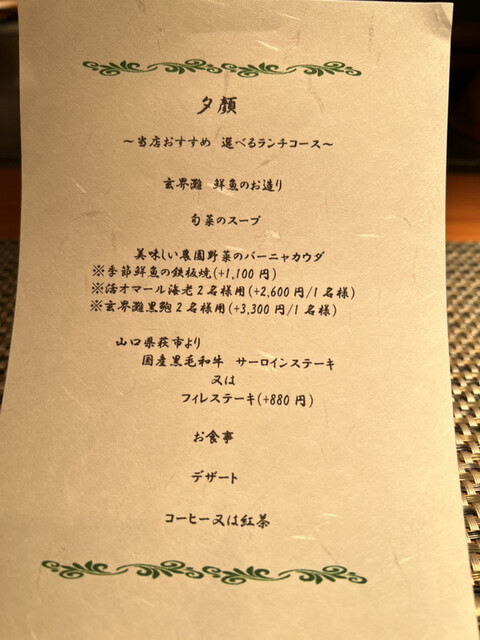 夕顔
～当店おすすめ 選べるランチコース～
玄界灘 鮮魚のお造り
旬菜のスープ
美味しい農園野菜のバーニャカウダ
※季節鮮魚の鉄板焼(+1,100円)
※活オマール海老2名様用(+2,600円/1名様)
※玄界灘黒鮑2名様用(+3,300円/1名様)
山口県萩市より
国産黒毛和牛 サーロインステーキ
又は
フィレステーキ(+880円)
お食事
デザート
コーヒー又は紅茶